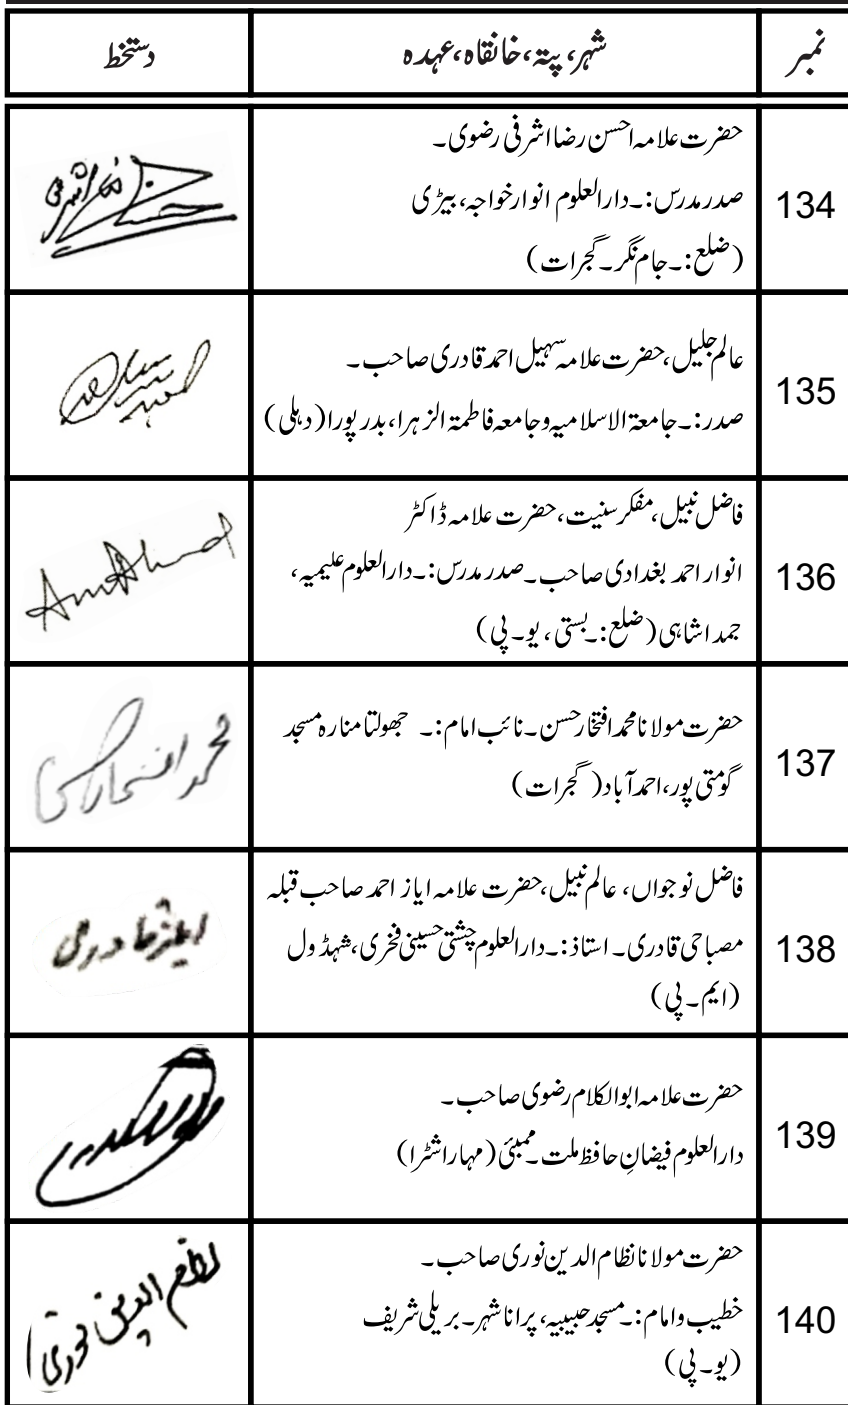 نمبر
شہر، پتہ، خانقاہ، عہدہ
دستخط
134
حضرت علامہ احسن رضا اشرفی رضوی۔
صدر مدرس:۔ دارالعلوم انوار خواجہ، بیڑی
(ضلع:۔ جام نگر۔ گجرات)
135
عالم جلیل، حضرت علامہ سہیل احمد قادری صاحب۔
صدر:۔ جامعۃ الاسلامیہ وجامعہ فاطمۃ الزہرا، بدر پورا (دہلی)
136
فاضل نبیل، مفکر سنیت، حضرت علامہ ڈاکٹر
انوار احمد بغدادی صاحب۔ صدر مدرس:۔ دارالعلوم علیمیہ،
جمدا شاہی (ضلع:۔ بستی، یو۔ پی)
137
حضرت مولانا محمد افتخار حسن۔ نائب امام:۔ جھولتا منارہ مسجد
گومتی پور، احمد آباد (گجرات)
محمد افتخار حسن
138
فاضل نوجواں، عالم نبیل، حضرت علامہ ایاز احمد صاحب قبلہ
مصباحی قادری۔ استاذ:۔ دارالعلوم چشتی حسینی فخری، شہڈول
(ایم۔ پی)
139
حضرت علامہ ابوالکلام رضوی صاحب۔
دارالعلوم فیضانِ حافظ ملت۔ ممبئی (مہاراشٹرا)
140
حضرت مولانا نظام الدین نوری صاحب۔
خطیب وامام:۔ مسجد حبیبیہ، پرانا شہر۔ بریلی شریف
(یو۔ پی)
نظام الدین نوری